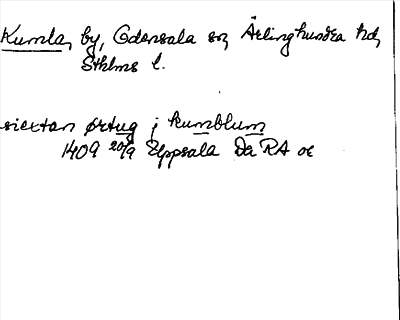 Kumla, by, Odensala sn, Ärlinghundra hd,
Sthlms l.
siextan ørtug j kumblum
1409 20/9 Uppsala Da RA or